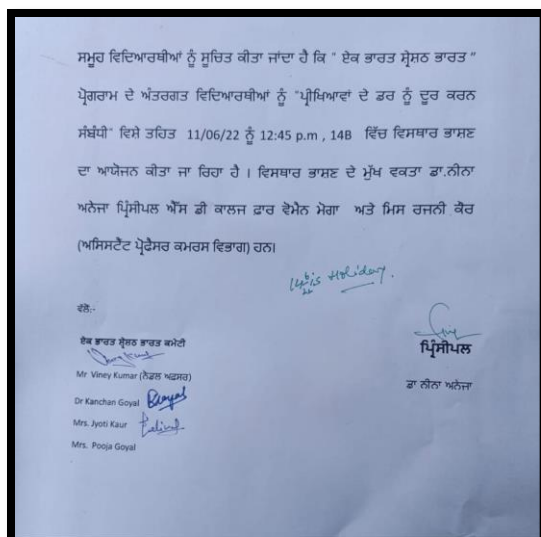 ਸਮੂਹ ਵਿਦਿਆਰਥੀਆਂ ਨੂੰ ਸੂਚਿਤ ਕੀਤਾ ਜਾਂਦਾ ਹੈ ਕਿ " ਏਕ ਭਾਰਤ ਸ਼੍ਰੇਸ਼ਠ ਭਾਰਤ "
ਪ੍ਰੋਗਰਾਮ ਦੇ ਅੰਤਰਗਤ ਵਿਦਿਆਰਥੀਆਂ ਨੂੰ "ਪ੍ਰੀਖਿਆਵਾਂ ਦੇ ਡਰ ਨੂੰ ਦੂਰ ਕਰਨ
ਸੰਬੰਧੀ" ਵਿਸ਼ੇ ਤਹਿਤ 11/06/22 ਨੂੰ 12:45 p.m , 14B ਵਿੱਚ ਵਿਸਥਾਰ ਭਾਸ਼ਣ
ਦਾ ਆਯੋਜਨ ਕੀਤਾ ਜਾ ਰਿਹਾ ਹੈ । ਵਿਸਥਾਰ ਭਾਸ਼ਣ ਦੇ ਮੁੱਖ ਵਕਤਾ ਡਾ.ਨੀਨਾ
ਅਨੇਜਾ ਪ੍ਰਿੰਸੀਪਲ ਐੱਸ ਡੀ ਕਾਲਜ ਫ਼ਾਰ ਵੋਮੈਨ ਮੋਗਾ ਅਤੇ ਮਿਸ ਰਜਨੀ ਕੌਰ
(ਅਸਿਸਟੈਂਟ ਪ੍ਰੋਫੈਸਰ ਕਮਰਸ ਵਿਭਾਗ) ਹਨ।
is Holiday.
ਵੱਲੋਂ:-
ਏਕ ਭਾਰਤ ਸ਼੍ਰੇਸ਼ਠ ਭਾਰਤ ਕਮੇਟੀ
ਪ੍ਰਿੰਸੀਪਲ
Mr Viney Kumar (ਨੋਡਲ ਅਫ਼ਸਰ)
ਡਾ ਨੀਨਾ ਅਨੇਜਾ
Dr Kanchan Goyal
Mrs. Jyoti Kaur
Mrs. Pooja Goyal